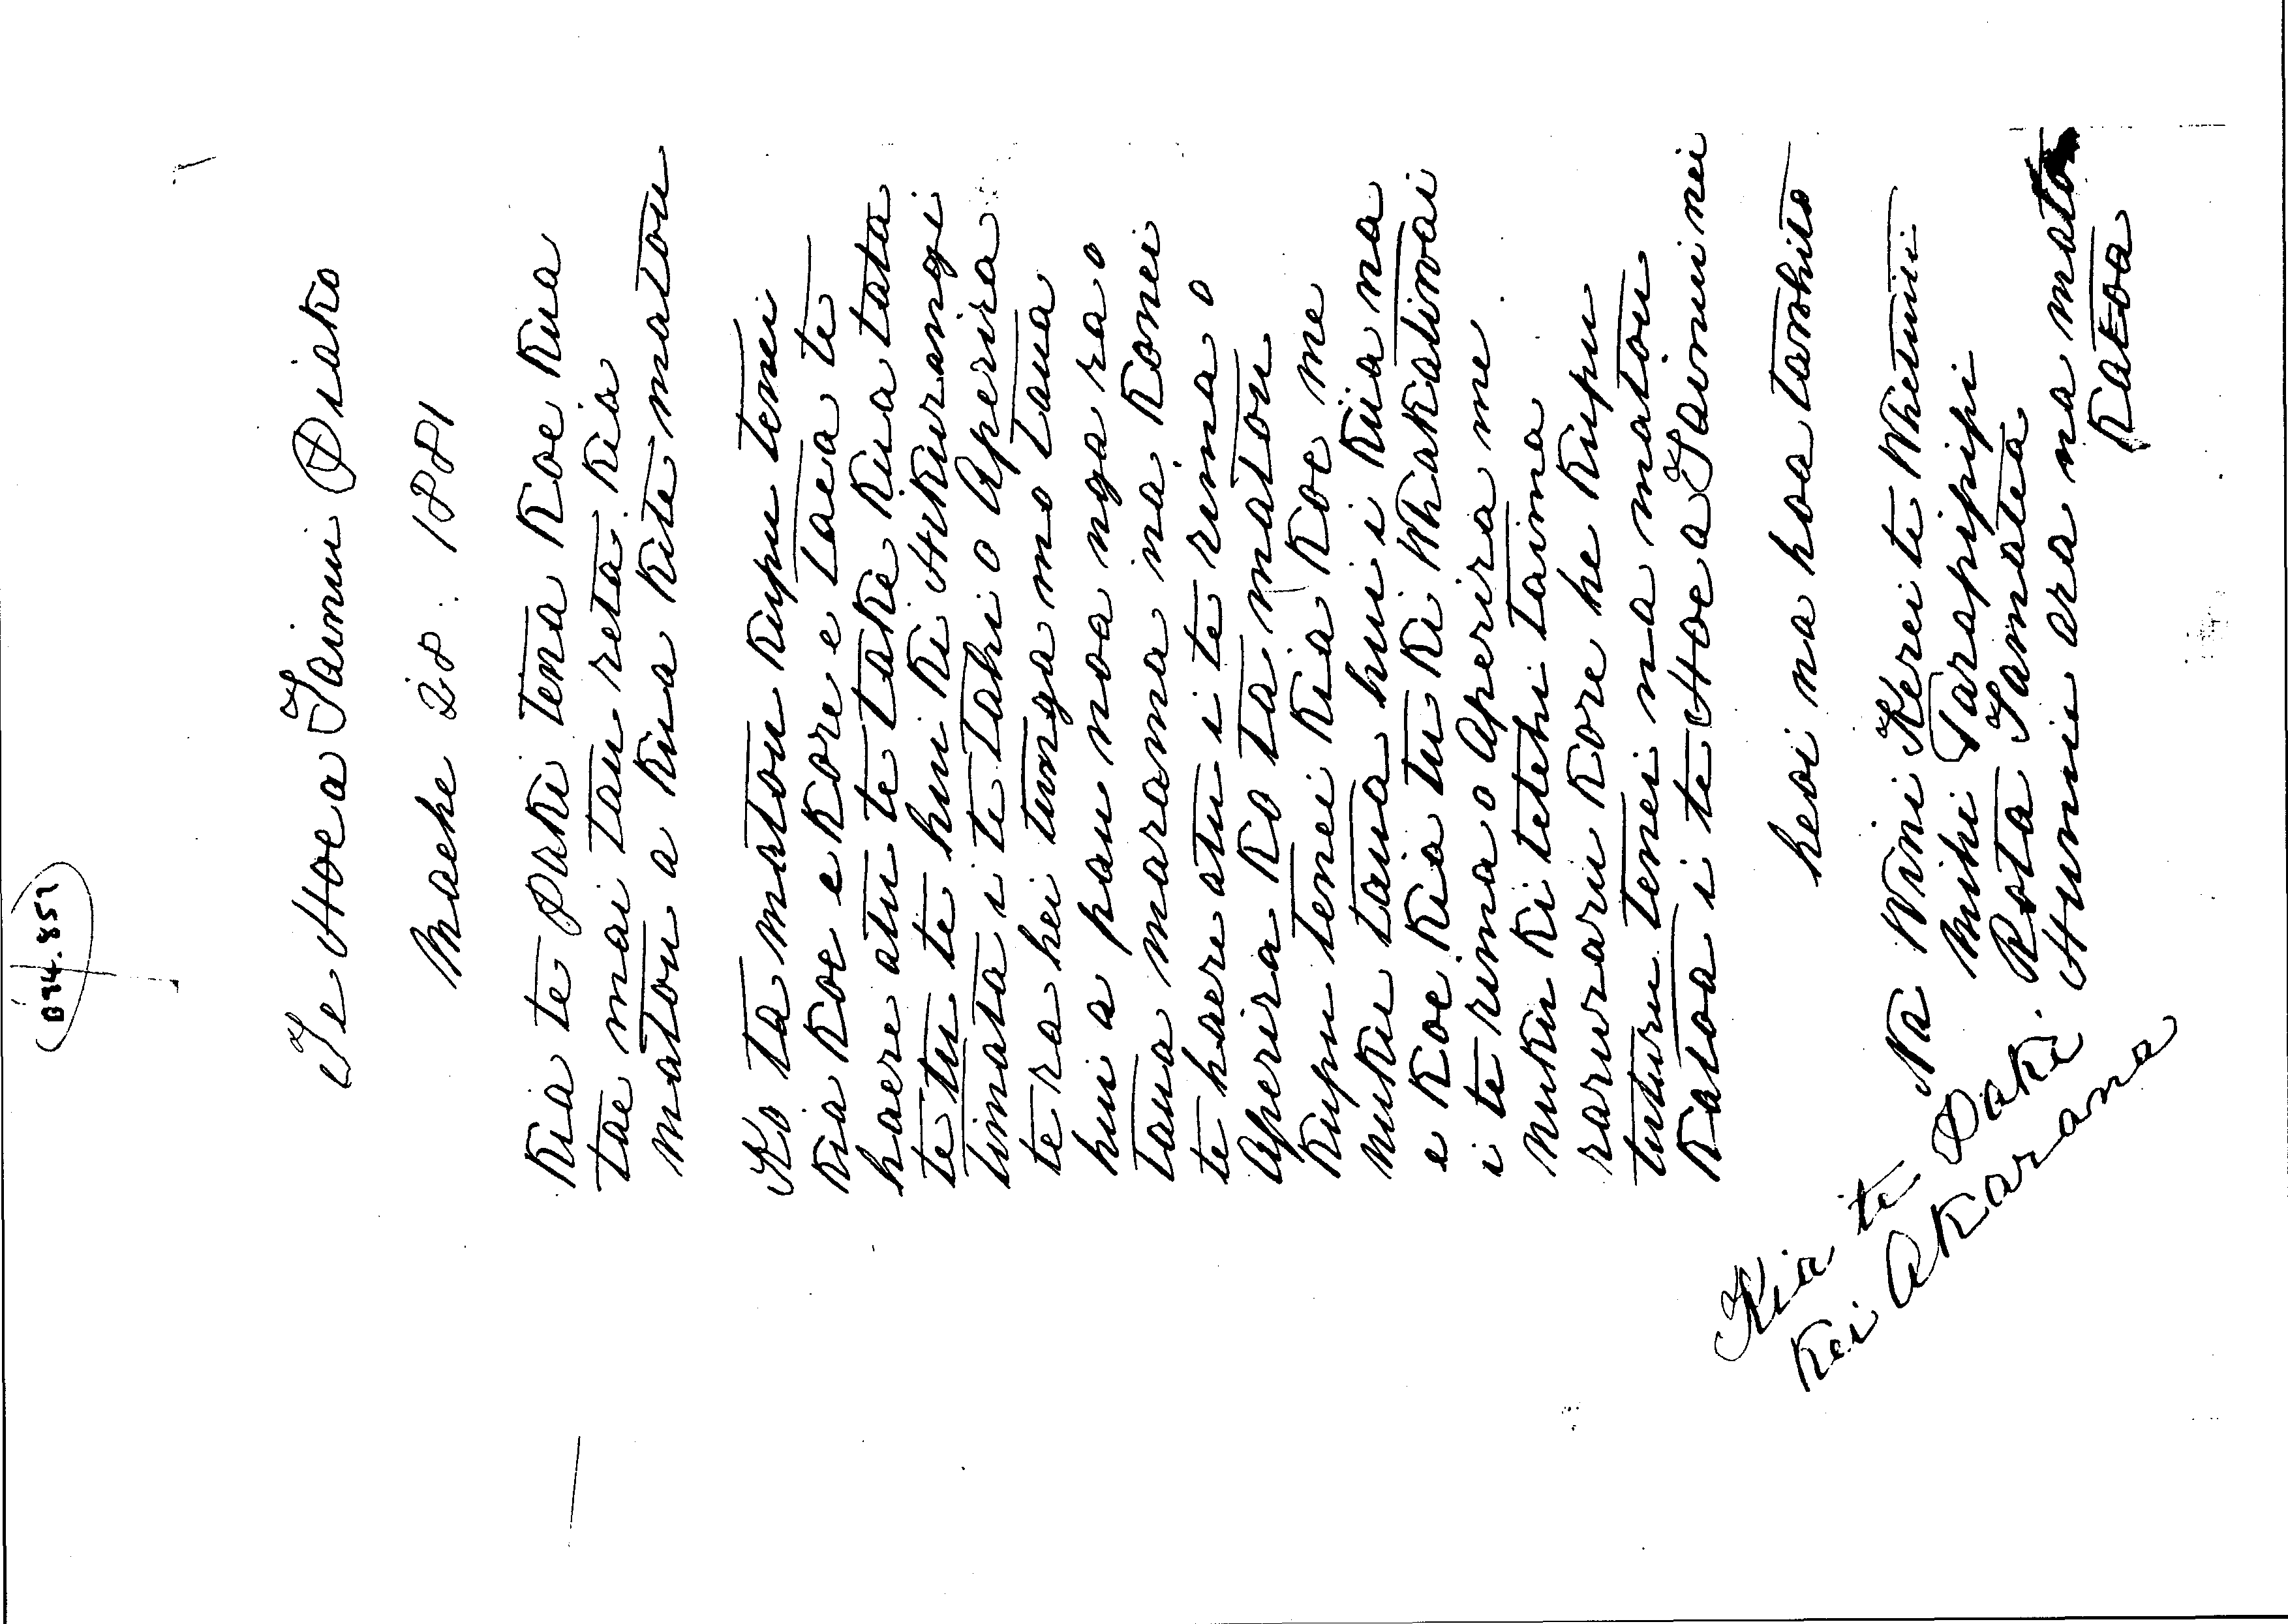 B94.857
Te Hoe a Tainui Piako
Maehe 28. 1881
Kia te Paki tena Koe Kua
tae mai tau reta Kia
matou a Kua Kite matou
Ko ta matou Kupu tenei
Kia Koe e Kore e taea te
haere atu te take Kua tata
te tu te hui Ki Hikurangi
timata i te tahi o Aperira
te ra hei tunga mo taua
hui a pau noa nga ra o
taua marama na Konei
te haere atu i te rima o
Aperira Ko ta matou
Kupu tenei Kia Koe me
nuku taua hui i Kiia na
e Koe Kia tu Ki Whakatiwai
i te rima o Aperira me
nuku Ki tetehi taima
raruraru Kore he Kupu
tuturu tenei na matou
Katoa i te Hoe a Tainui nei
heoi na hoa tawhito
Na Wini Kerei te Whetuiti
Mihi Tarapipi
Rota Tamatea
Hunia ara na matou
Katoa
Kia te Paki.
Kei Akarana